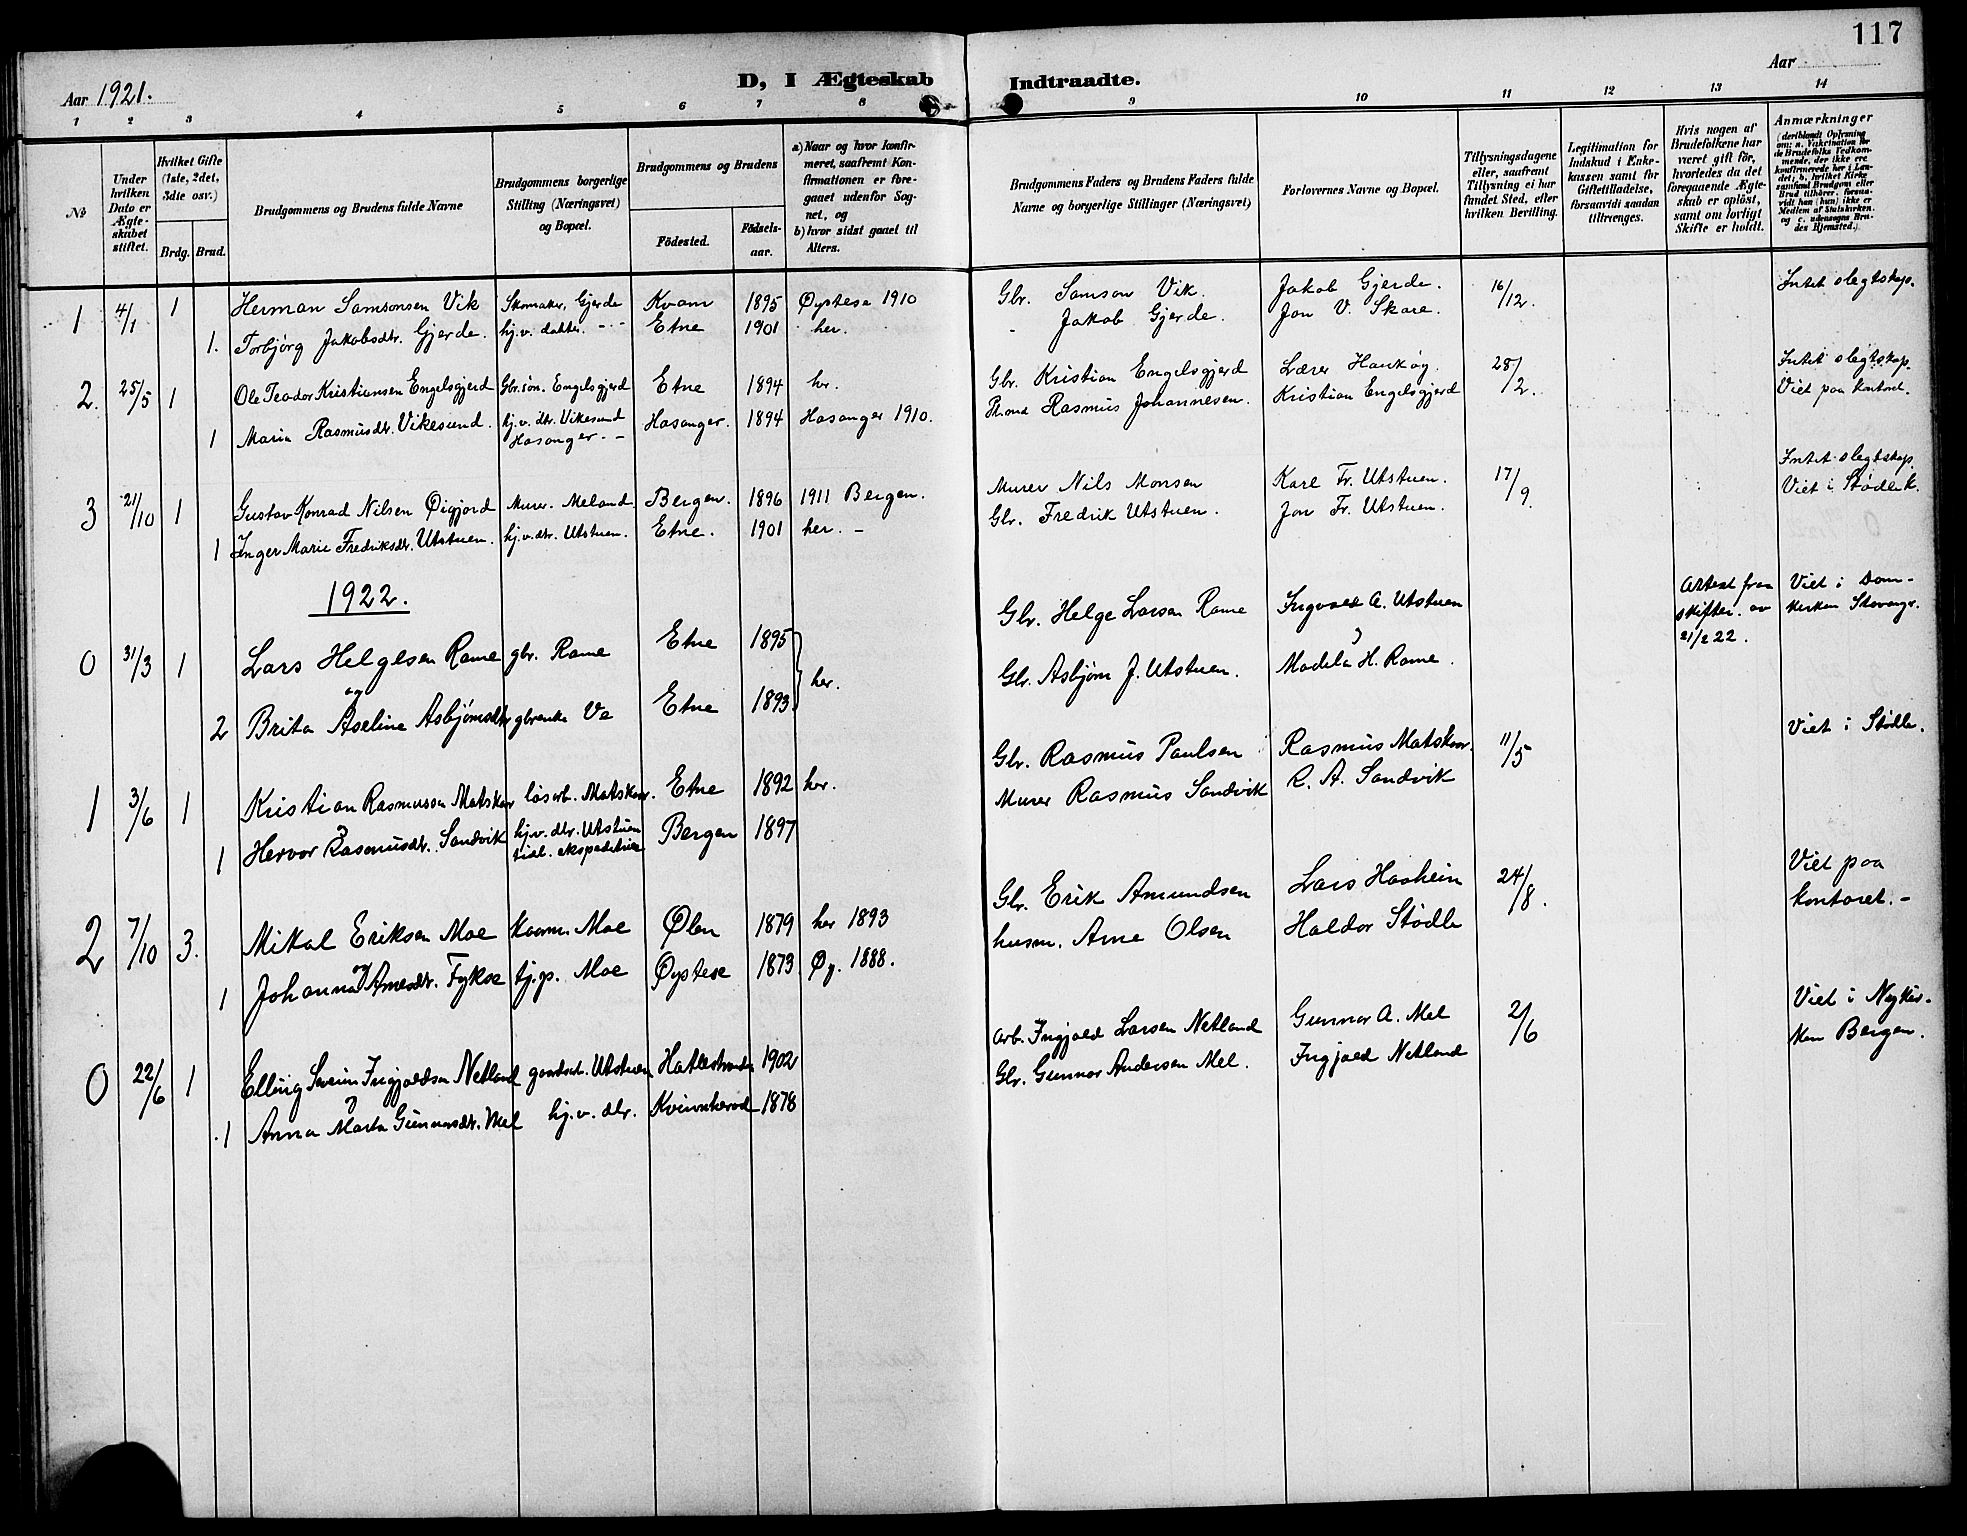 117
D, I Ægteskab Indtraadte.
Aar 1921.
Aar
1 2 3 4 5 6 7 8 9 10 11 12 13 14
№
Under hvilken Dato er Ægteskabet stiftet.
Hvilket Gifte (1ste, 2det, 3die osv.)
Brdg. Brud.
Brudgommens og Brudens fulde Navne
Brudgommens borgerlige Stilling (Næringsvei) og Bopæl.
Brudgommens og Brudens
Födested. Födsels-aar.
a) Naar og hvor konfirmeret, saafremt Konfirmationen er foregaaet udenfor Sognet, og
b) hvor sidst gaaet til Alters.
Brudgommens Faders og Brudens Faders fulde Navne og borgerlige Stillinger (Næringsvei)
Forlovernes Navne og Bopæl.
Tillysningsdagene eller, saafremt Tillysning ei har fundet Sted, efter hvilken Bevilling.
Legitimation for Indskud i Enkekassen samt for Giftetilladelse, forsaavidt saadan tiltrænges.
Hvis nogen af Brudefolkene har været gift för, hvorledes da det foregaaende Ægteskab er oplöst, samt om lovligt Skifte er holdt.
Anmærkninger (deriblandt Oplysning om: a. Vakcination for de Brudefolks Vedkommende, der ikke ere konfirmerede her i Landet; b. hvilket Kirkesamfund Brudgom eller Brud tilhörer, forsaavidt han (hun) ikke er Medlem af Statskirken, og c. udensogns Brudes Hjemsted.)
1 4/1 1 Herman Samsonsen Vik Skomaker, Gjerde Kvam 1895 Øystese 1910 Gbr. Samson Vik. Jakob Gjerde. 16/12. Intet slegtskap.
1. Torbjörg Jakobsdtr. Gjerde. hj.v. datter. - - Etne 1901 her. - Jakob Gjerde. Jon V. Skare.
2. 25/5 1 Ole Teodor Kristiansen Engelsgjerd Gbr.sön. Engelsgjerd Etne 1894 her. Gbr. Kristian Engelsgjerd Lærer Haukög. 28/2. Intet slegtskap. Viet paa kontoret.
1 Maria Rasmusdtr. Vikesund. hj.v. dtr. Vikesund Hosanger. - Hosanger. 1894 Hosanger 1910. Rasmus Johannesen. Kristian Engelsgjerd
3 21/10 1 Gustav Konrad Nilsen Øigjord Murer. Meland Bergen. 1896 1911 Bergen. Murer Nils Monsen Karl Fr. Utstuen. 17/9. Intet slegtskap. Viet i Stødle k.
1 Inger Marie Fredriksdtr. Utstuen. hj.v. dtr. Utstuen. Etne. 1901 her. - Gbr. Fredrik Utstuen. Jon Fr. Utstuen.
1922.
0 31/3 1 Lars Helgesen Rame gbr. Rame Etne 1895 her. Gbr. Helge Larsen Rame Ingvald A. Utstuen Attest fraa skifter. av 21/2 22. Viet i Domkirken Stavanger.
og
2 Brita Aseline Asbjörnsdtr gbrenke Ve Etne 1893 Gbr. Asbjörn J. Utstuen. Madela H. Rame.
1 3/6 1 Kristian Rasmussen Matskor løsarb. Matskor. Etne 1892 her. Gbr. Rasmus Paulsen Rasmus Matskor. 11/5 Viet i Stødle.
1 Hervor Rasmusdtr. Sandvik hj.v. dtr. Utstuen tidl. ekspeditrise Bergen 1897 Murer Rasmus Sandvik R. A. Sandvik
2 7/10 3. Mikal Eriksen Moe Moe Ølen 1879 her 1893 Gbr. Erik Amundsen Lars Haaheim 24/8. Viet paa kontoret. -
og
1 Johanna Arnesdtr. Fykse tj.p. Moe Øystese 1873 Øy. 1888. husm. Arne Olsen Haldor Stødle
0 22/6 1 Elling Severin Ingjaldsen Netland gaardsat. Utstuen Hatlestranden 1902 Arb. Ingjald Larsen Netland Gunnar A. Mel 2/6 Viet i Nykirken Bergen.
1 Anna Marta Gunnarsdtr. Mel hj.v. dtr. Kvinnherad 1878 Gbr. Gunnar Andersen Mel. Ingjald Netland